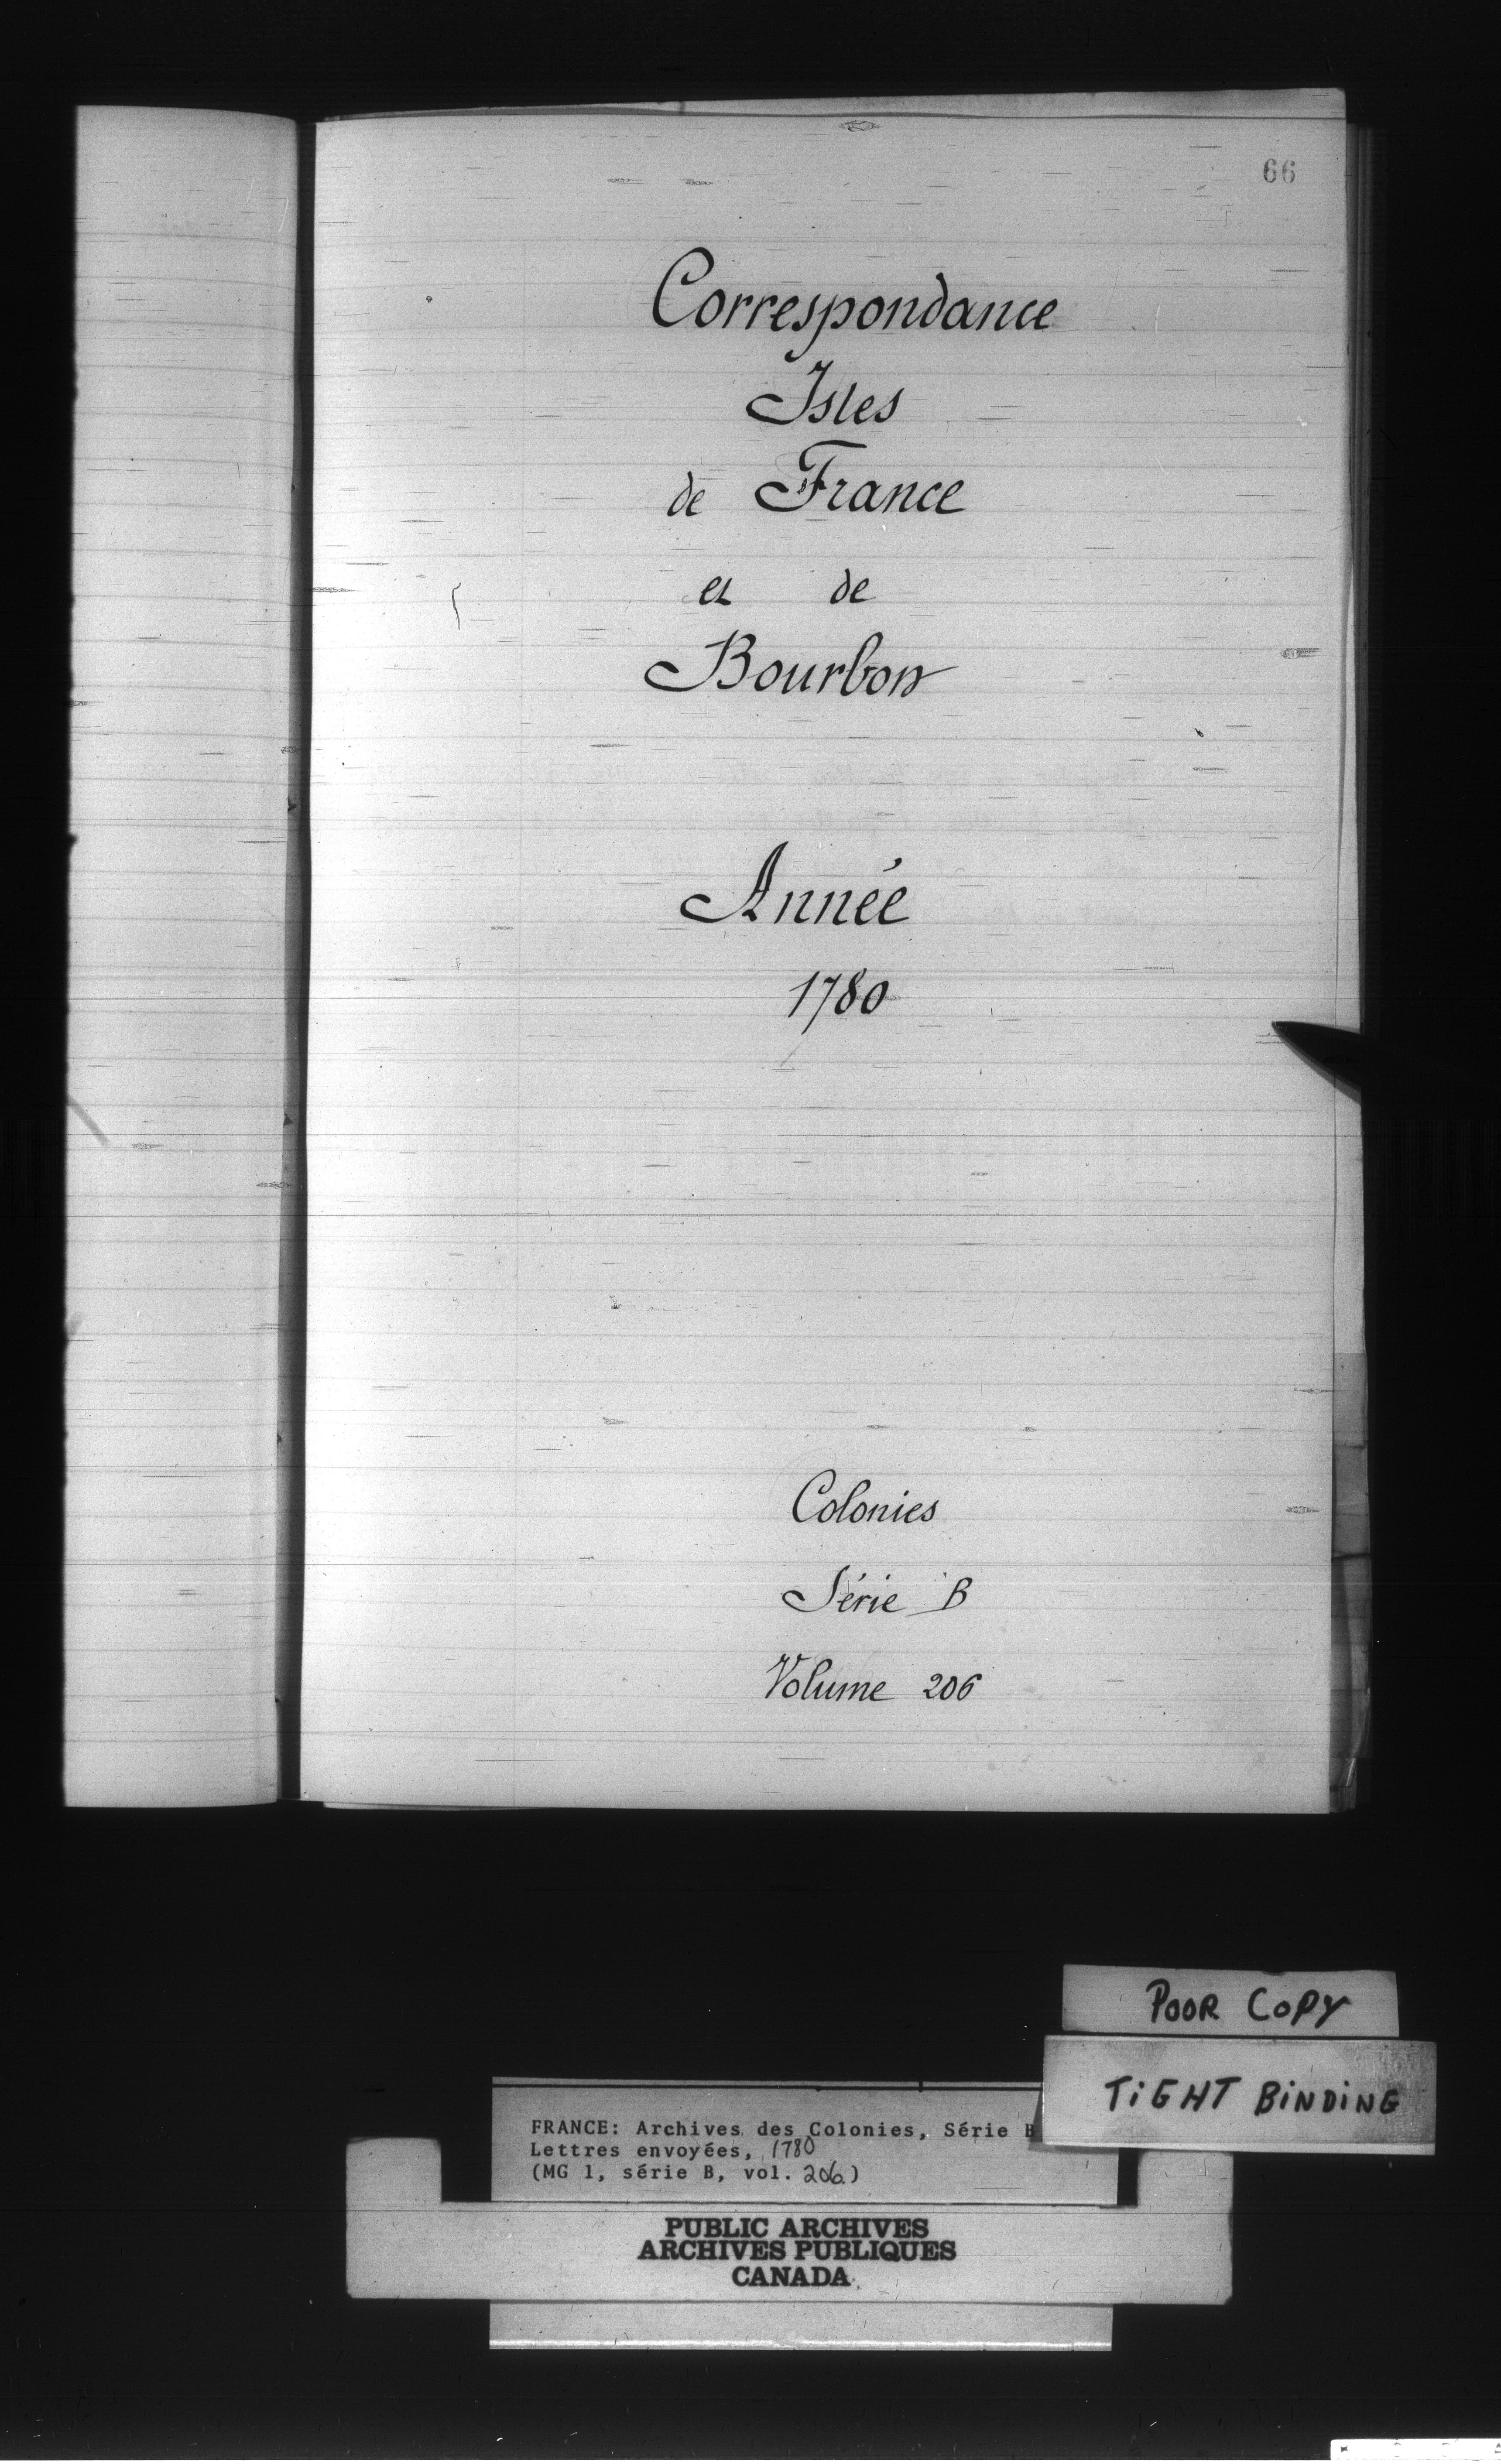 66
Correspondance
Isles
de France
et de
Bourbon
Année
1780
Colonies
Série B
Volume 206
POOR COPY
TIGHT BINDING
FRANCE: Archives des Colonies, Série B
Lettres envoyées, 1780
(MG 1, série B, vol. 206.)
PUBLIC ARCHIVES
ARCHIVES PUBLIQUES
CANADA